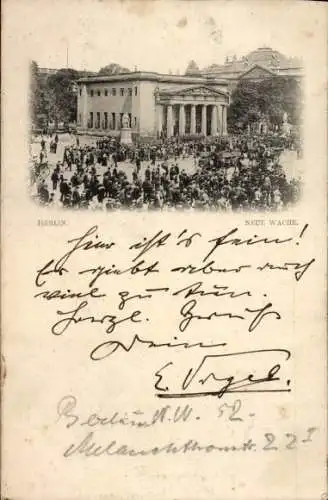 BERLIN. NEUE WACHE.
Hier ist's fein!
Es giebt aber auch
viel zu tun.
Herzl. Gruß
Dein
E. Vogel.
Berlin N.W. 52.
Melanchthonstr. 22 I